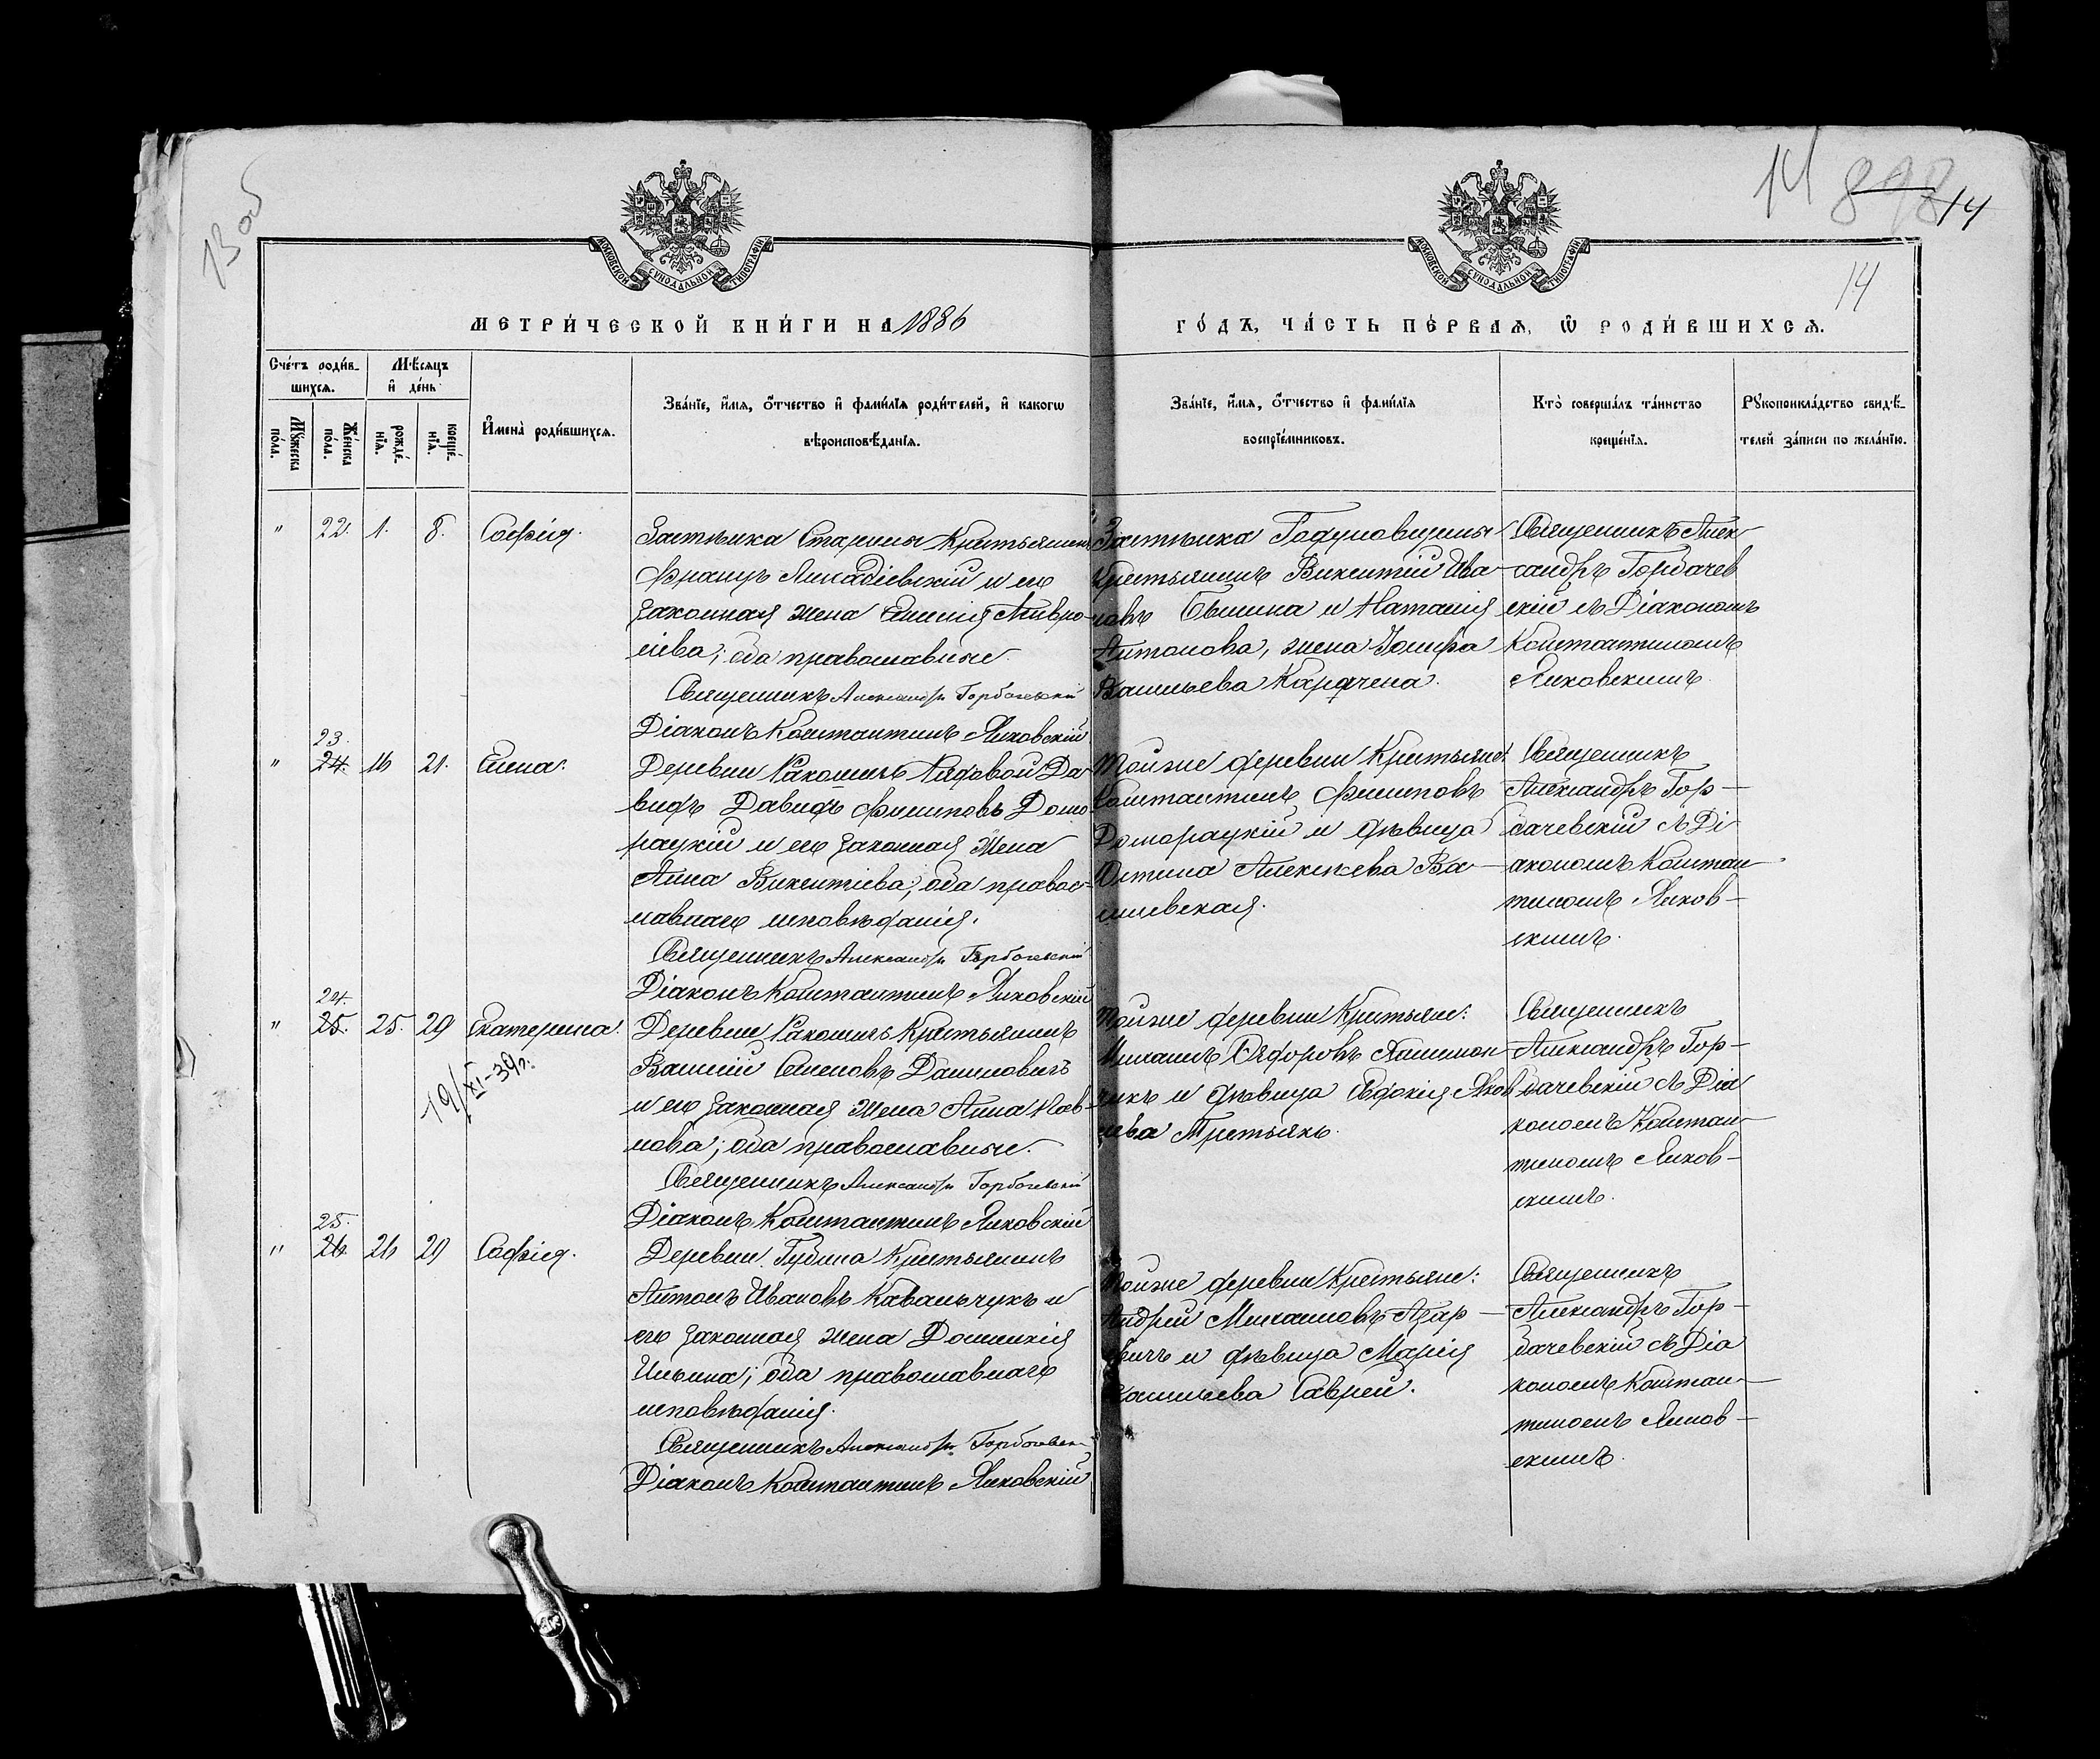 13 об
14 898 14
14
МОСКОВСКОЙ СѴНОДАЛЬНОЙ ТИПОГРАФІИ
МОСКОВСКОЙ СѴНОДАЛЬНОЙ ТИПОГРАФІИ
МЕТРИ́ЧЕСКОЙ КНИ́ГИ НА 1886
ГО́ДЪ, ЧА́СТЬ ПЕ́РВАѦ, Ѡ҆ РОДИ́ВШИХСѦ.
Сче́тъ роди́в-
шихсѧ.
Мꙋ́жеска
по́ла.
Же́нска
по́ла.
Мѣ́сѧцъ
и҆ де́нь
рожде́-
нїѧ.
креще́-
нїѧ.
И҆мена̀ роди́вшихсѧ.
Зва́нїе, и҆́мѧ, ѻ҆́тчество и҆ фами́лїѧ роди́телей, и҆ како́гѡ
вѣроисповѣ́данїѧ.
Зва́нїе, и҆́мѧ, ѻ҆́тчество и҆ фами́лїѧ
воспрїе́мниковъ.
Кто̀ соверша́лъ та́инство
креще́нїѧ.
Рꙋкоприкла́дство свидѣ́-
телей за́писи по жела́нїю.
" 22. 1. 8. Софія.
Застѣнка Старины Крестьянинъ
Францъ Лукашевскій и его
законная жена Емилія Амвро-
сіева; оба православные.
Священникъ Александръ Горбачевскій
Діаконъ Константинъ Янковскій
Застѣнка Годуновщины
крестьянинъ Викентій Ива-
новъ и Наталія
Антонова, жена Іосифа
Васильева
Священникъ Алек
сандръ Горбачев
скій съ Діакономъ
Константиномъ
Янковскимъ.
23.
" 24. 16 21. Елена.
Деревни Рядовой Да-
видъ Давидъ Филиповъ Домо
рацкій и его законная жена
Анна Викентіева; оба правос-
лавнаго исповѣданія.
Священникъ Александръ Горбачевскій
Діаконъ Константинъ Янковскій
Той же деревни Крестьяне:
Константинъ Филиповъ
Доморацкій и дѣвица
Юстина Алексѣева Ва-
шевская.
Священникъ
Александръ Гор-
бачевскій съ Ді
акономъ Констан-
тиномъ Янков-
скимъ.
24.
" 25. 25. 29 Екатерина.
19/XI-39г.
Деревни Крестьянинъ
Василій Семеновъ Даниловичъ
и его законная жена Анна Пав-
лова; оба православные.
Священникъ Александръ Горбачевскій
Діаконъ Константинъ Янковскій
Той же деревни Крестьяне:
Михаилъ Ѳедоровъ
чикъ и дѣвица Евдокія Яков
лева Третьякъ.
Священникъ
Александръ Гор-
бачевскій съ Діа
кономъ Констан-
тиномъ Янков-
скимъ.
25.
" 26. 26 29 Софія.
Деревни Губина Крестьянинъ
Антонъ Ивановъ Кавальчукъ и
его законная жена Доминикія
Ильина; оба православнаго
исповѣданія.
Священникъ Александръ Горбачевск
Діаконъ Константинъ Янковскій
Той же деревни Крестьяне:
Андрей Михаиловъ Азар-
евичъ и дѣвица Марія
Васильева Гаврей.
Священникъ
Александръ Гор-
бачевскій съ Діа
кономъ Констан-
тиномъ Янков-
скимъ.